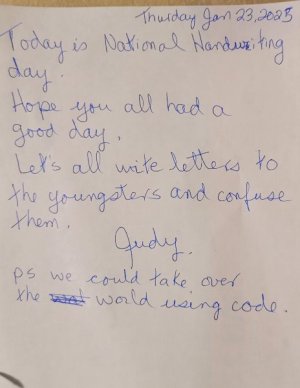 Thursday Jan 23, 2025
Today is National Handwriting
day.
Hope you all had a
good day.
Let's all write letters to
the youngsters and confuse
them.
Judy.
ps we could take over
the world using code.